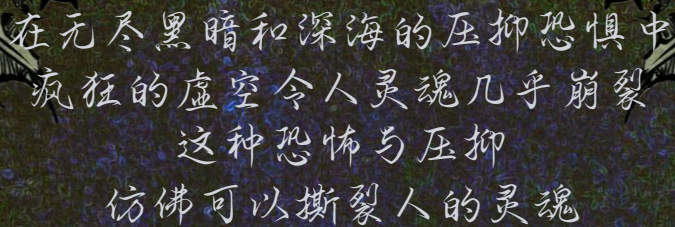 在无尽黑暗和深海的压抑恐惧中
疯狂的虚空令人灵魂几乎崩裂
这种恐怖与压抑
仿佛可以撕裂人的灵魂